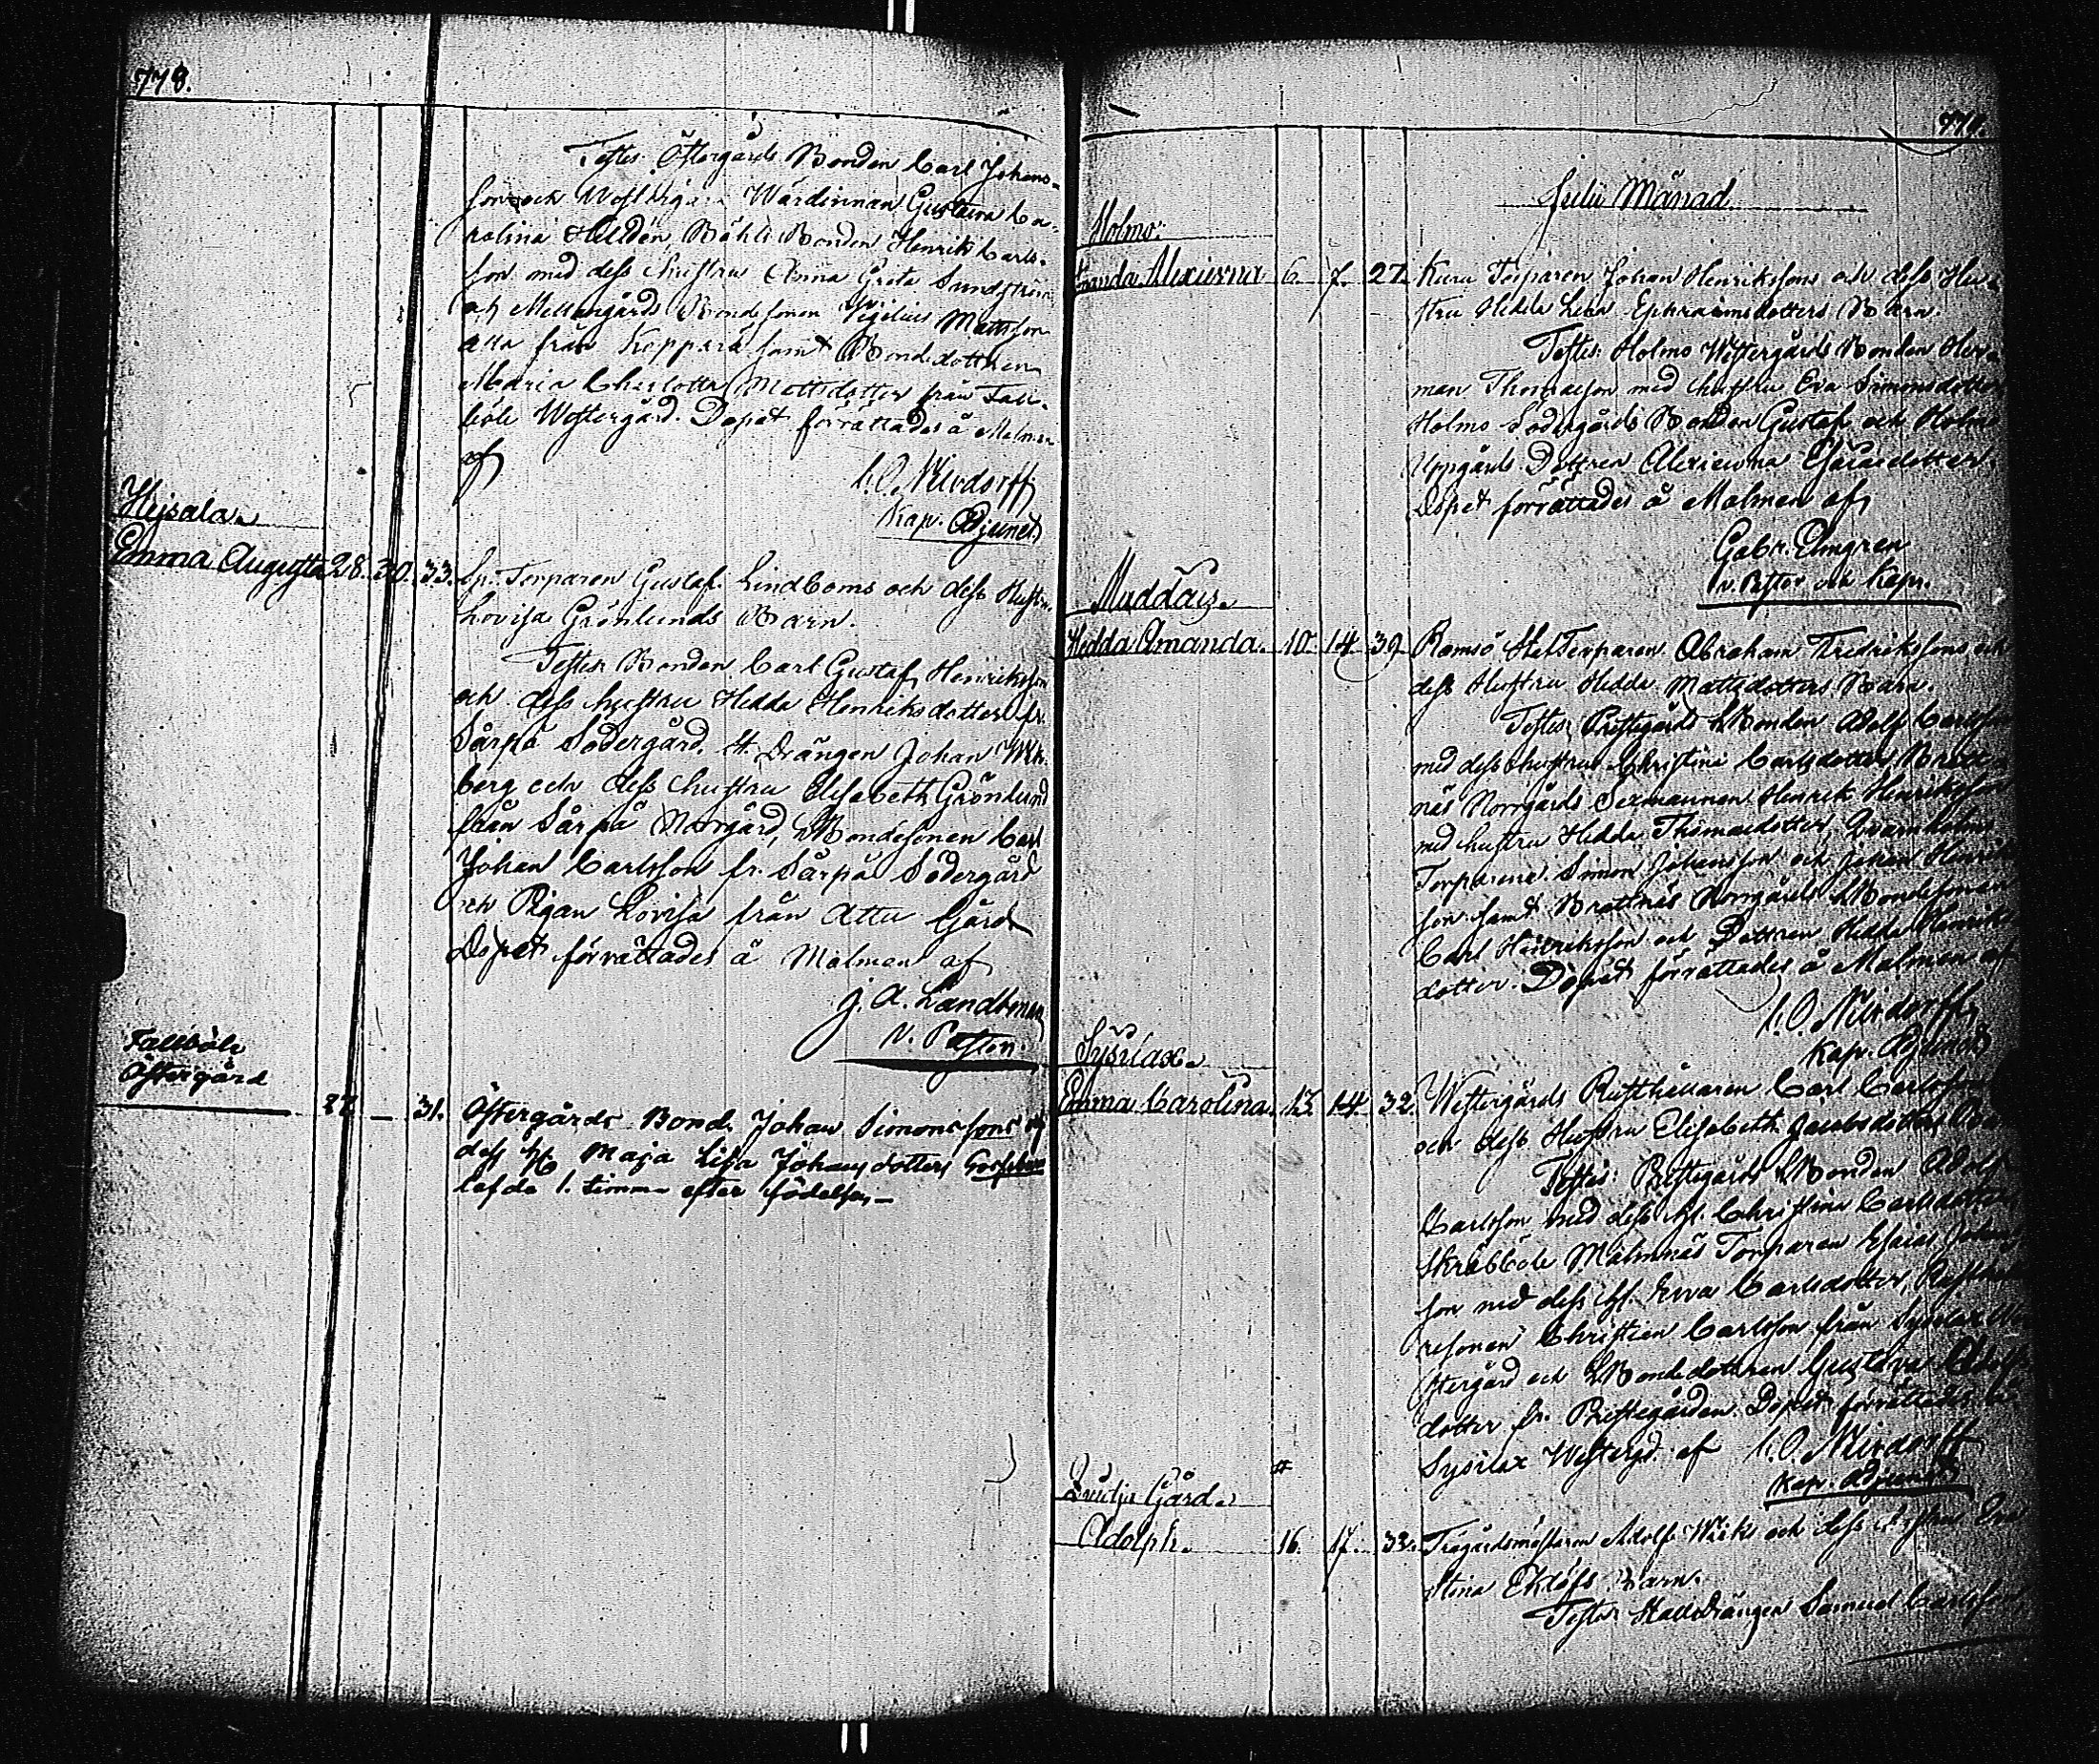 778.
Testes: Östergårds Bonden Carl Johans-
son och Wärdinnan Gustava Ca-
rolina Bonden Henrik Carls-
son med dess hustru Anna Greta
och Mellangårds Bondesonen Vigilius Mattsson
alla från Kopparå samt Bondedottren
Maria Charlotta Mattsdotter från Fall-
böle Westergård. Dopet förrättades å Malmen
af
C.O. Nierdorff
Kap. Adjunct
Hejsala.
Emma Augusta 28. 30. 33. Sp. Torparen Gustaf Lindboms och dess Hustru
Lovisa Grönlunds Barn.
Testes: Bonden Carl Gustaf Henriksson
och dess hustru Hedda Henriksdotter fr.
Sårpå Södergård, Drängen Johan Wik-
berg och dess hustru Elisabeth Grönlund
från Sårpå Norrgård, Bondesonen Carl
Johan Carlsson fr. Sårpå Södergård
och Pigan Lovisa från Attu Gård
Dopet förrättades å Malmen af
J. A. Landtman
V. Pastor.
Fallböle
Östergård
27 — 31. Östergårds Bond. Johan Simonssons och
dess H. Maja Lisa Johansdotters
lefde 1. timme efter födelsen —
779.
Julii Månad
Holmo.
Amanda Alexievna 6. 7. 27. Kura Torparen Johan Henrikssons och dess Hu-
stru Hedda Lena Ephraimsdotters Barn.
Testes: Holmo Westergårds Bonden Her-
man Thomasson med hustru Eva Simonsdotter
Holmo Södergårds Bonden Gustaf och Holmo
Uppgårds Dottren Alexievna Esaiedotter.
Dopet förrättades å Malmen af
Gabr. Elmgren
v. Pastor och Kapn.
Muddais.
Hedda Amanda. 10. 14. 39. Ramsö Torparen Abraham Fredrikssons och
dess Hustru Hedda Mattsdotters Barn.
Testes: Prestegårds Bonden Adolf Carlsson
med dess hustru Christina Carlsdotter, Bratt-
näs Norrgårds Sexmannen Henrik Henriksson
med hustru Hedda Thomasdotter, Qvarnholms
Torparene Simon Johansson och Johan Henriks-
son samt Brattnäs Norrgårds Bondesonen
Carl Henriksson och Dottren Hedda Henriks-
dotter. Dopet förrättades å Malmen af
C.O. Nierdorff
Kap. Adjunct
Sysilax.
Emma Carolina. 13. 14. 32. Westergårds Rusthållaren Carl Carlssons
och dess Hustru Elisabeth Jacobsdotters
Testes: Prestegårds Bonden Adolf
Carlsson med dess H. Christina Carlsdotter,
Skräbböle Malmnäs Torparen Esaias Johans-
son med dess H. Eva Carlsdotter, Rusthålla-
resonen Christian Carlsson från Sysilax We-
stergård och Bondedottren Gustava Adolfs-
dotter fr. Prestegården. Dopet förrättades
Sysilax Westergd. af C.O. Nierdorff
Kap. Adjunct
Gård.
Adolph. 16. 17. 33. Trägårdsmästaren Adolf Wiks och dess Hustru Eva
Stina Eklöfs Barn.
Testes: Stalldrängen Samuel Carlsson,